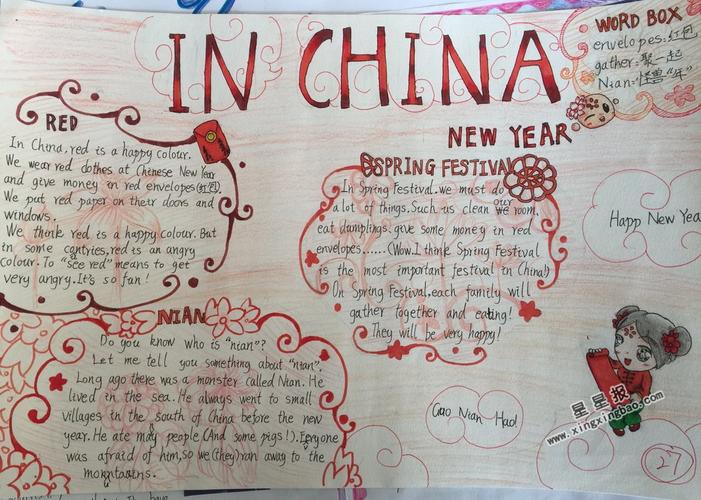 IN CHINA
WORD BOX
envelopes:红包,
gather:聚一起
Nian:怪兽“年”
NEW YEAR
RED
In China, red is a happy colour.
We wear red clothes at Chinese New Year
and give money in red envelopes(红包)
We put red paper on their doors and
windows.
We think red is a happy colour. But
in some contries, red is an angry
colour. To "see red" means to get
very angry. It's so fun!
SPRING FESTIVAL
In Spring Festival, we must do
a lot of things. Such us clean our room.
eat dumplings. give some money in red
envelopes......(Wow. I think Spring Festival
is the most important festival in China!)
On Spring Festival, each family will
gather together and eating!
They will be very happy!
Happy New Yea
NIAN
Do you know who is "nian"?
Let me tell you something about "nian".
Long ago there was a monster called Nian. He
lived in the sea. He always went to small
villages in the south of China before the new
year. He ate many people (And some pigs!). Everyone
was afraid of him, so we (they) ran away to the
mountains.
Gao Nian Hao!
星星报
www.xingxingbao.com
27